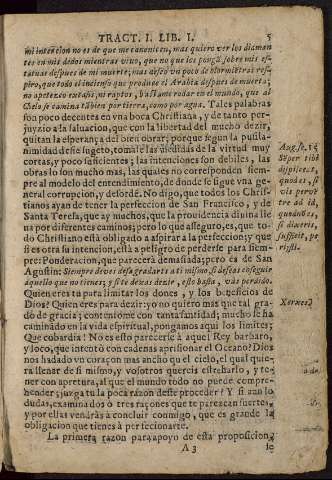 TRACT. I. LIB. I. 5
mi intencion no es de que me canonicen, mas quiero ver los diaman
tes en mis dedos mientras vivo, que no que los pongã sobre mis es-
tatuas despues de mi muerte; mas
que todo el incienso que produce el Arabia despues de muerta;
no apetezco extasis, ni raptos, bastame rodar en el mundo, que al
Cielo se camina tãbien por tierra, como por agua. Tales palabras
son poco decentes en vna boca Christiana, y de tanto per-
juyzio a la saluacion, que con la libertad del mucho dezir,
quitan la esperança del bien obrar; porque segun la pusila-
nimidad desse sugeto, toma le las medidas de la virtud muy
cortas, y poco suficientes; las intenciones son debiles, las
obras lo son mucho mas, las quales no corresponden siem-
pre al modelo del entendimiento, de donde se sigue vna ge
neral corrupcion, y desorde. No digo, que todos los Chris-
tianos ayan de tener la perfeccion de San Francisco, y de
Santa Teresa, que ay muchos, que la providencia diuina lle
va por diferentes caminos; pero lo que asseguro, es, que to-
do Christiano està obligado a aspirar a la perfeccion; y que
si es otra su intencion, està a peligro de perderse para siem-
pre: Ponderacion, que parecerà demasiada; pero es de San
Agustin: Siempre deves desagradarte a ti mismo, si deseas conseguir
aquello que no tienes; y si te dexas dezir, esto basta, vas perdido.
Quien eres tu para limitar los dones, y los beneficios de
Dios? Quien eres para dezir: yo no quiero mas que tal gra-
dò de gracia; contentome con tanta santidad; mucho se ha
caminado en la vida espiritual, pongamos aqui los limites;
Que cobardia! No es esto parecerse à aquel Rey barbaro,
y loco, que intentò con cadenas aprisionar el Oceano? Dios
nos ha dado vn coraçon mas ancho que el cielo, el qual quie-
re llenar de si mismo, y vosotros quereis estrecharlo, y te-
ner con apretura, al que el mundo todo no puede compre-
hender; juzga tu la poca razon deste proceder? Y si aun lo
dudas, examina dos ò tres raçones que te parezcan fuertes,
y por ellas vendràs à concluir conmigo, que es grande la
obligacion que tienes à perfeccionarte.
La primera razon para apoyo de esta proposicion,
A 3 se
Aug. ser.
Sẽper tibi
displiceat,
quod es, si
vis perve
tire ad id,
quod nõ es,
si dixeris,
sufficit, pe
risti.
Xerxes.